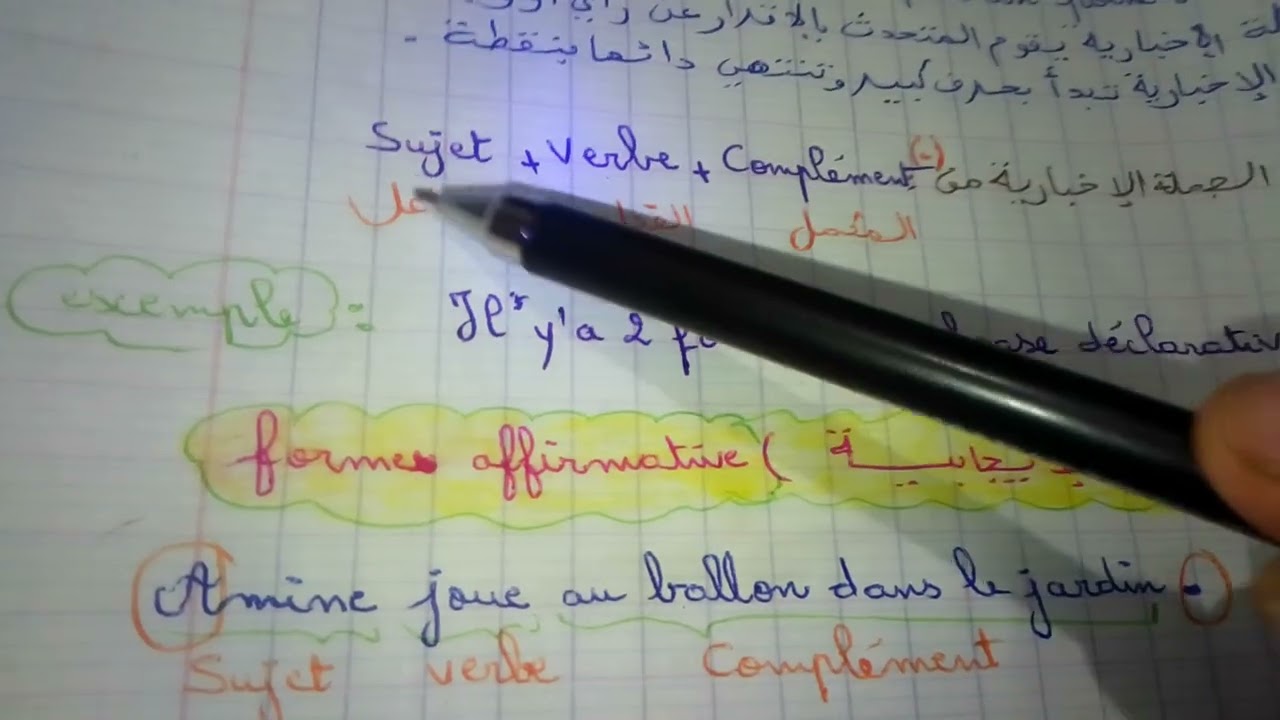 لة الإخبارية يقوم المتحدث بالإقرار عن رأي أو
الإخبارية تبدأ بحرف كبير وتنتهي دائما بنقطة .
الجملة الإخبارية من Sujet + Verbe + Complément (.)
المكمل
exemple :
Il y'a 2 déclarativ
forme affirmative (
Amine joue au ballon dans le jardin .
Sujet verbe Complément